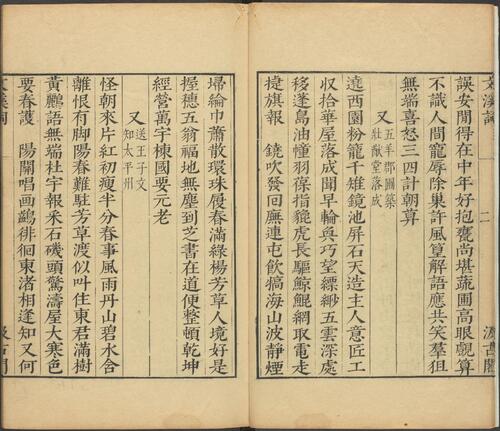 文溪詞 二 汲古閣
誤安閒得在中年好抱甕尚堪蔬圃高眼覷算
不識人間寵辱除巢許風篁解語應共笑羣狙
無端喜怒三四計朝算
又 五羊郡圃築
壯猷堂落成
遶西園粉籠千雉鏡池屏石天造主人意匠工
收拾華屋落成閒早輪奐巧望縹緲五雲深處
移蓬島油幢羽葆指貔虎長驅鯨鯢網取電走
揵旗報 鐃吹發回廡連屯飲犒海山波靜煙
埽綸巾蕭散環珠履春滿綠楊芳草人境好是
握穗五翁福地無塵到芝書在道便整頓乾坤
經營萬宇棟國要元老
又 送王子文
知太平州
怪朝來片紅初瘦半分春事風雨丹山碧水含
離恨有脚陽春難駐芳草渡似叶住東君滿樹
黃鸝語無端杜宇報采石磯頭驚濤屋大寒色
要春護 陽關唱画鷁徘徊東渚相逢知又何